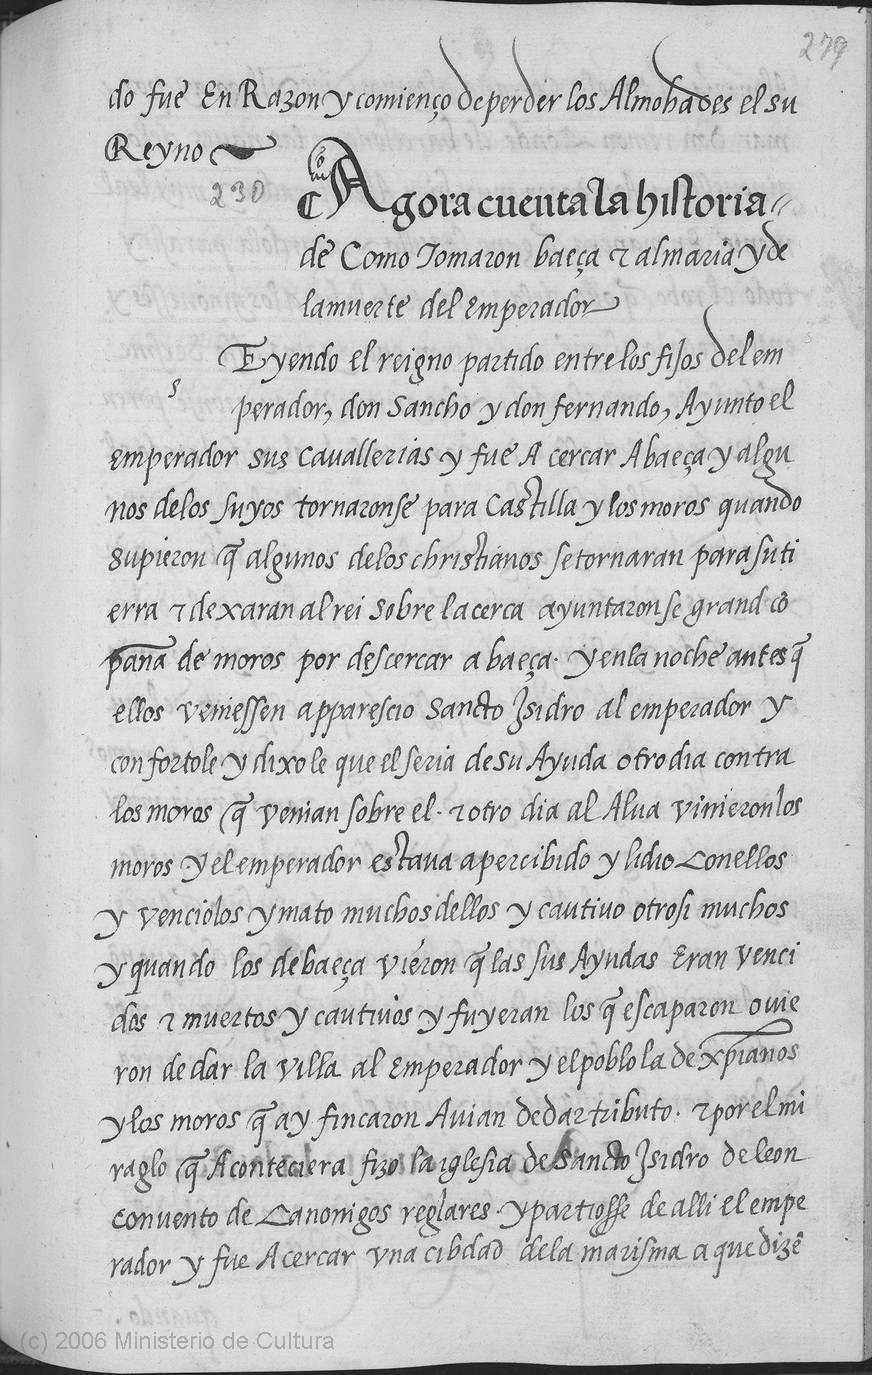 279
do fue En Razon y comienço de perder los Almohades el su
Reyno
230
Agora cuenta la historia
de Como Tomaron baeça ⁊ almaria y de
la muerte del Emperador
s Eyendo el reigno partido entre los fijos del em
perador, don Sancho y don fernando, Ayunto el
emperador sus cavallerias y fue A cercar A baeça y algu
nos de los suyos tornaronse para Castilla y los moros quando
supieron q̃ algunos de los christianos se tornaran para su ti
erra ⁊ dexaran al rei sobre la cerca ayuntaronse grand cō
pan̄a de moros por descercar a baeça· y en la noche antes q̃
ellos veniessen apparescio Sancto Jsidro al emperador y
confortole y dixole que el seria de su Ayuda otro dia contra
los moros q̃ venian sobre el· ⁊ otro dia al Alua vinieron los
moros y el emperador estaua apercibido y lidio Con ellos
y venciolos y mato muchos dellos y cautiuo otrosi muchos
y quando los de baeça vieron q̃ las sus Ayudas Eran venci
dos ⁊ muertos y cautiuos y fuyeran los q̃ escaparon ouie
ron de dar la villa al Emperador y el poblo la de xp̄ianos
y los moros q̃ ay fincaron Auian de dar tributo· ⁊ por el mi
raglo q̃ Aconteciera fizo la iglesia de Sancto Jsidro de leon
convento de Canonigos reglares· y partiosse de alli el empe
rador y fue A cercar vna cibdad de la marisma a que dizē
(c) 2006 Ministerio de Cultura